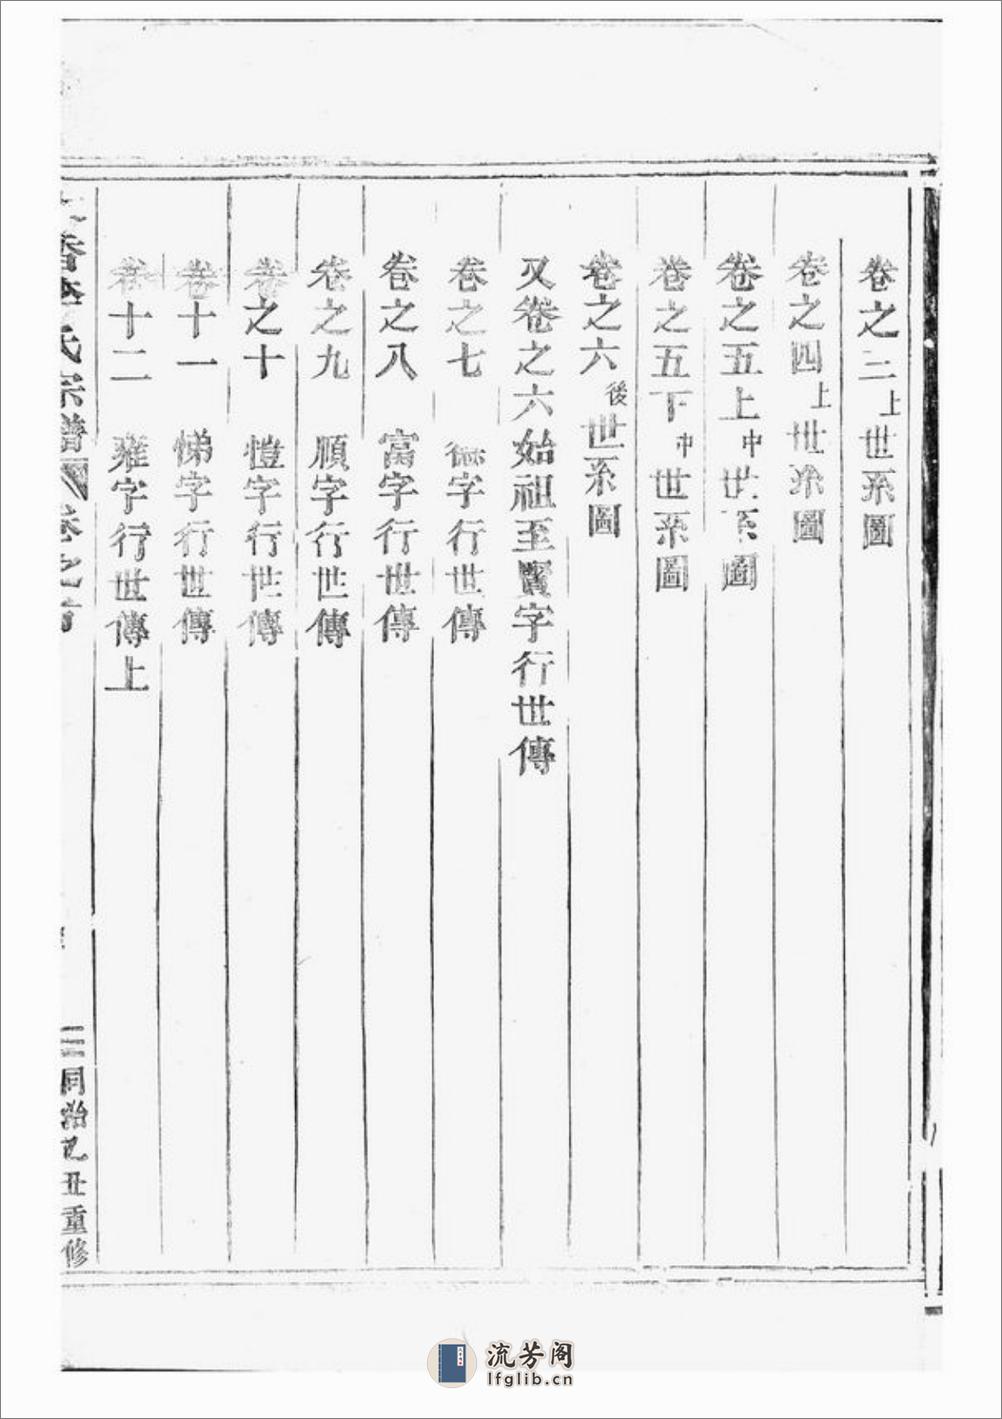 卷之三上世系圖
卷之四上世系圖
卷之五上中世系圖
卷之五下中世系圖
卷之六後世系圖
又卷之六始祖至賢字行世傳
卷之七 德字行世傳
卷之八 富字行世傳
卷之九 順字行世傳
卷之十 愷字行世傳
卷十一 悌字行世傳
卷十二 雍字行世傳上
氏宗譜 卷之首 三 同治乙丑重修
流芳阁
lfglib.cn